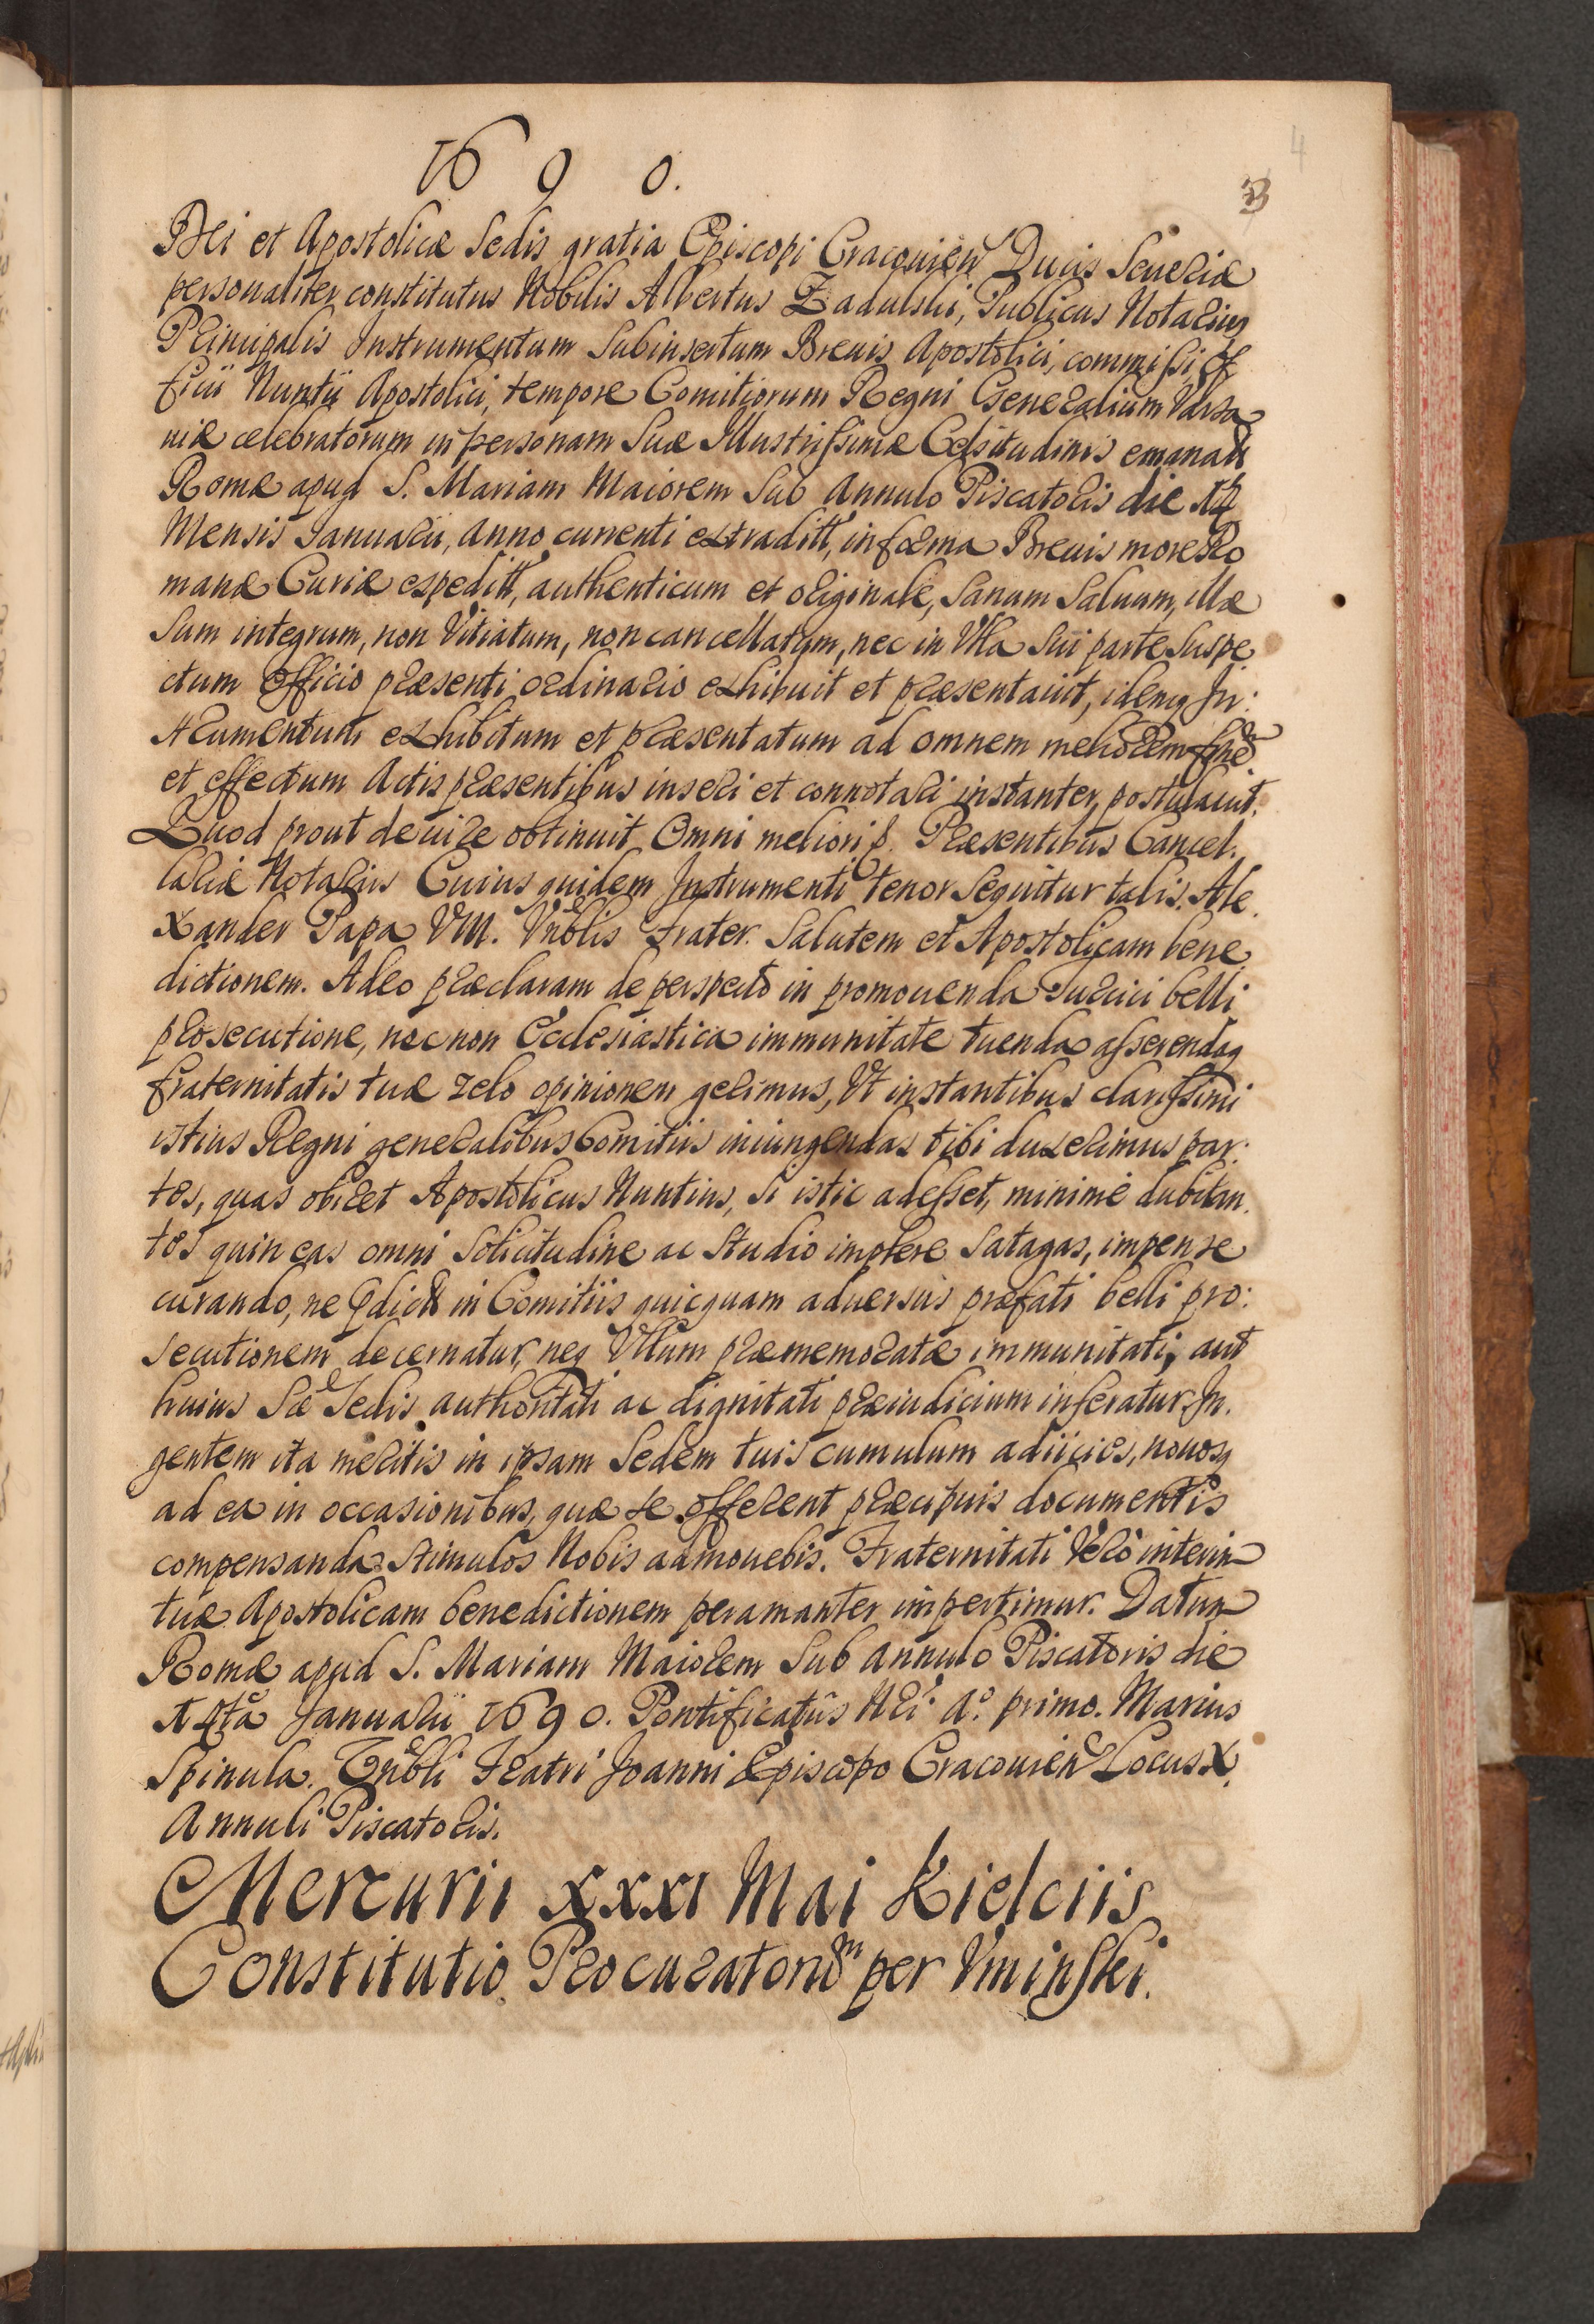 1690.
4
3
Dei et Apostolicæ Sedis gratia Episcopi Cracouien Ducis Seueriæ
personaliter constitutus Nobilis Albertus Zadulski, Publicus Notarius
Principalis Instrumentum Subinsertum Breuis Apostolici, commissi Of
ficii Nuntii Apostolici, tempore Comitiorum Regni Generalium Varsa
uiæ celebratorum in personam Suæ Illustrissimæ Celsitudinis emanati
Romæ apud S. Mariam Maiorem Sub Annulo Piscatoris die 14
Mensis Januarii, Anno currenti extraditt, in forma Breuis more Ro
manæ Curiæ expeditt, authenticum et originale, Sanum Saluum, illæ
Sum integrum, non Vitiatum, non cancellatum, nec in Vlla Sui parte Suspe
ctum Officio præsenti ordinario exhibuit et præsentauit, idemq Ins:
trumentum exhibitum et præsentatum ad omnem meliorem finem
et effectum Actis præsentibus inseri et connotari instanter, postulauit.
Quod prout de iure obtinuit Omni meliori p. Præsentibus Cancel.
lariæ Notariis Cuius quidem Instrumenti tenor Sequitur talis. Ale
xander Papa VIII. Vnblis Frater. Salutem et Apostolicam bene
dictionem. Adeo præclaram de perspecto in promouenda Turcici belli
prosecutione, nec non Ecclesiastica immunitate tuenda asserendaq
fraternitatis tuæ zelo opinionem gerimus, Vt instantibus clarissimi
istius Regni generalibus Comitiis iniungendas tibi duxerimus par:
tes, quas obiret Apostolicus Nuntius, Si istic adesset, minimè dubitan
tes quin eas omni Solicitudine ac Studio implere Satagas, impense
curando, ne pdictt in Comitiis quicquam aduersus præfati belli pro:
secutionem decernatur, neq Vllum præmemoratæ immunitati, aut
huius Sæ Sedis authoritati ac dignitati præiudicium inferatur. In.
gentem ita meritis in ipsam Sedem tuis cumulum adiicies, nouosq
ad ea in occasionibus, quæ se offerent præcipuis documentis
compensanda Stimulos Nobis admouebis. Fraternitati Verò interim
tuæ Apostolicam benedictionem peramanter impertimur. Datum
Romæ apud S. Mariam Maiorem Sub Annulo Piscatoris die
14ta Januarii 1690. Pontificatûs Nri Ao. primo. Marius
Spinula. Vnbli Fratri Joanni Episcopo Cracouien Locus X
Annuli Piscatoris.
Mercurii XXXI Mai Kielciis
Constitutio Procuratorum per Vminski.